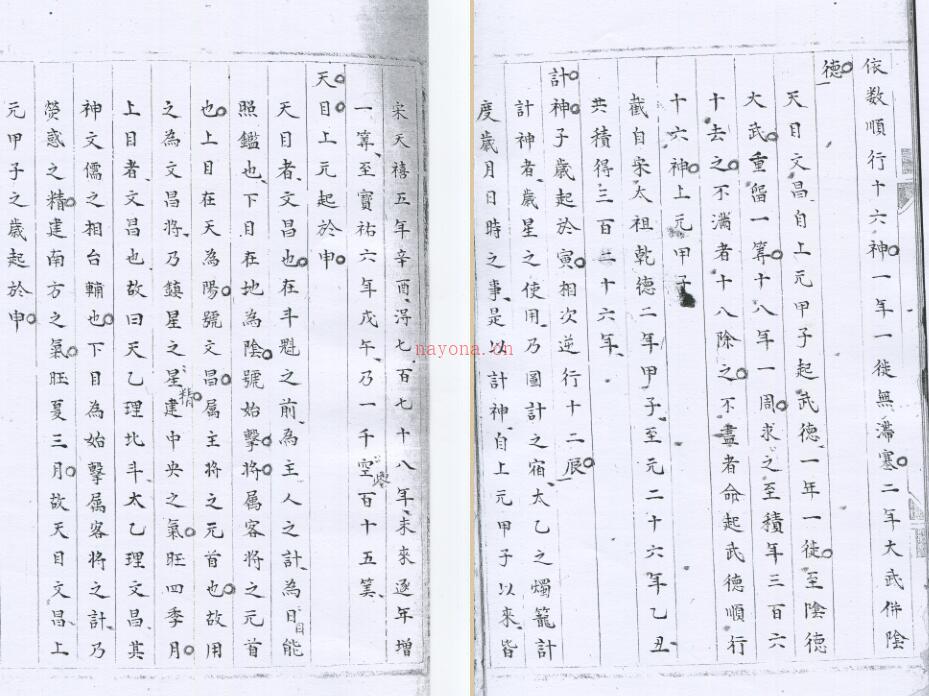 依数順行十六神一年一徙無滯塞二年大武併陰
德
天目文昌自上元甲子起武德一年一徙至陰德
大武重留一筭十八年一周求之至積年三百六
十去之不滿者十八除之不盡者命起武德順行
十六神上元甲子
截自宋太祖乾德二年甲子至元二十六年乙丑
共積得三百二十六年
計神子歲起於寅相次逆行十二辰
計神者歲星之使用乃圖計之宿太乙之燭籠計
度歲月日時之事是以計神自上元甲子以來皆
宋天禧五年辛酉淂七百七十八年未來逐年增
一筭至寶祐六年戊午乃一千空百十五筭
天目上元起於申
天目者文昌也在斗魁之前為主人之計為日目能
照鑑也下目在地為陰號始擊將属客將之元首
也上目在天為陽號文昌属主將之元首也故用
之為文昌將乃鎮星之星精建中央之氣旺四季月
上目者文昌也故曰天乙理北斗太乙理文昌其
神文儒之相台輔也下目為始擊属客將之計乃
熒惑之精建南方之氣旺夏三月故天目文昌上
元甲子之歲起於申
nayona.cn